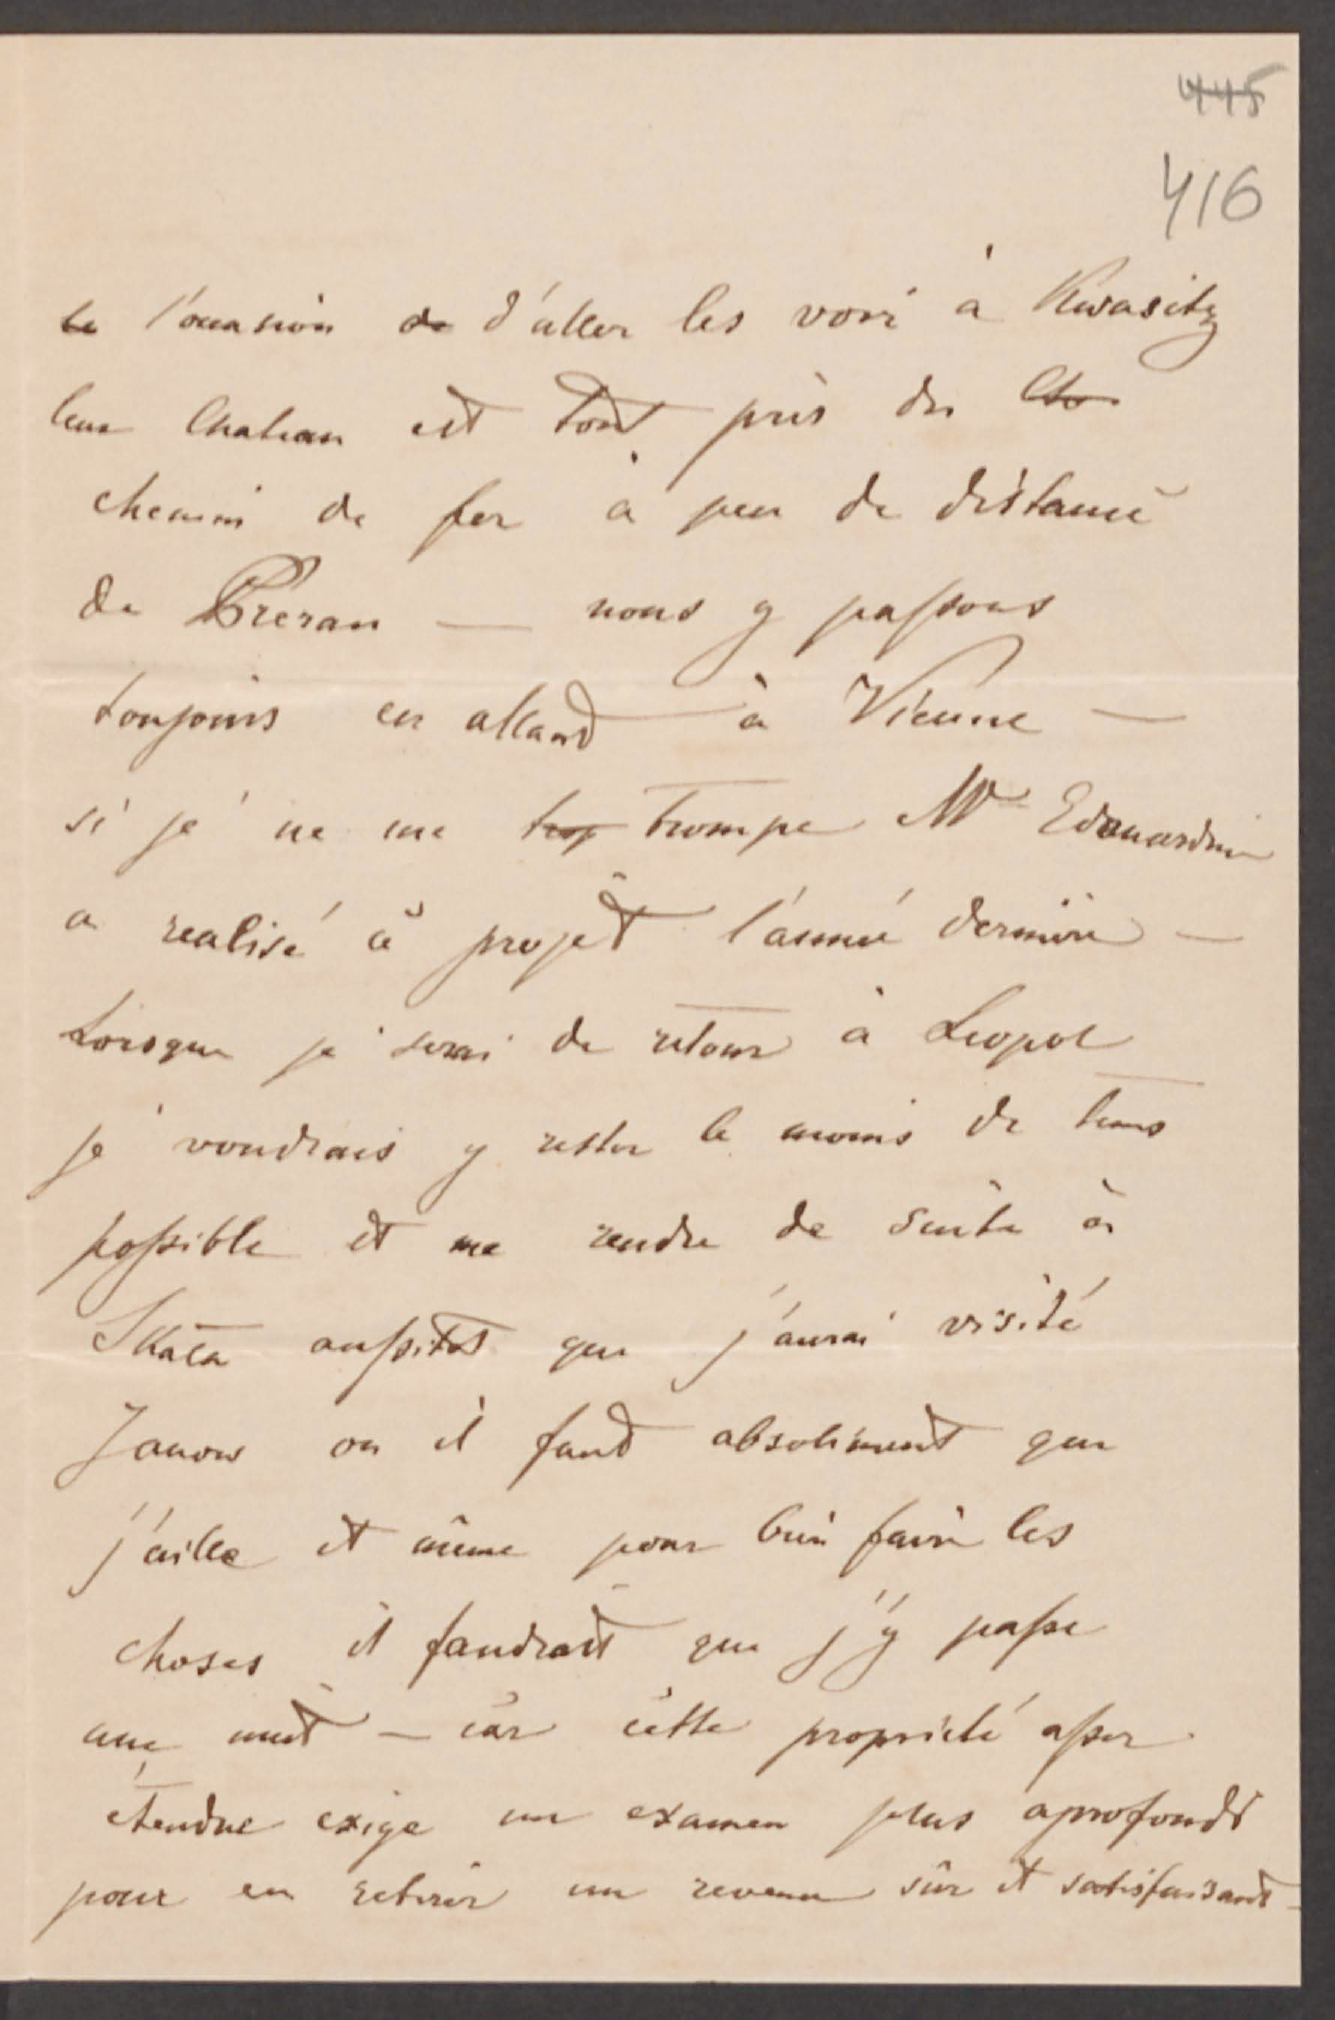 445
416
le l'occasion de d'aller les voir à Kwasitz
leur Chateau est tout près du Che
chemin de fer à peu de distance
de Prerau — nous y passons
toujours en allant à Vienne —
si je ne me trop trompe Mr Edouardine
a realisé ce projet l'année dernière —
Lorsque je serai de retour à Leopol
je voudrais y rester le moins de tems
possible et me rendre de suite à
Skała aussitot que j'aurai visité
Janow ou il faut absolument que
j'aille et même pour bien faire les
choses il faudrait que j'y passe
une nuit — car cette proprieté assez
étendue exige un examen plus aprofondi
pour en retirer un revenu sûr et satisfaisant —